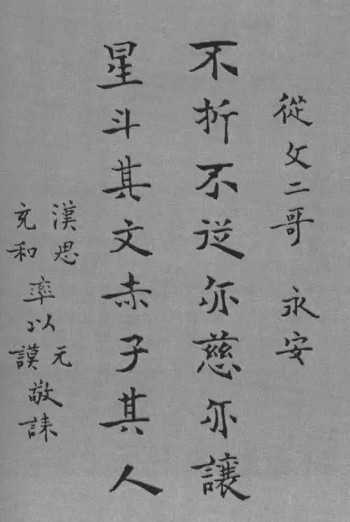 從文二哥 永安
不折不從亦慈亦讓
星斗其文赤子其人
漢思 充和 率以元 以謨 敬誄